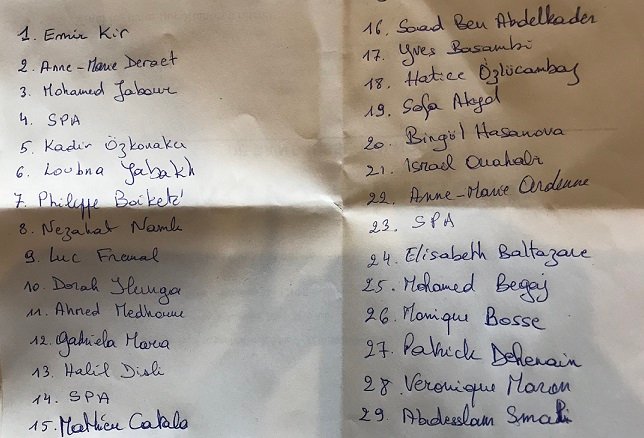 1. Emir Kir
2. Anne-Marie Deraet
3. Mohamed Jabour
4. SPA
5. Kadir Özkonakcı
6. Loubna Jabakh
7. Philippe Boiketé
8. Nezahat Namlı
9. Luc Fremal
10. Dorah Ilunga
11. Ahmed Medhoune
12. Gabriela Mara
13. Halil Disli
14. SPA
15. Mathieu Catala
16. Saad Ben Abdelkader
17. Yves Basambi
18. Hatice Özlücanbaş
19. Safa Akyol
20. Bingöl Hasanova
21. Israel Ouahabi
22. Anne-Marie Ardenne
23. SPA
24. Elisabeth Baltazare
25. Mohamed Begaj
26. Monique Bosse
27. Patrick Dehenain
28. Veronique Maron
29. Abdesslam Smali